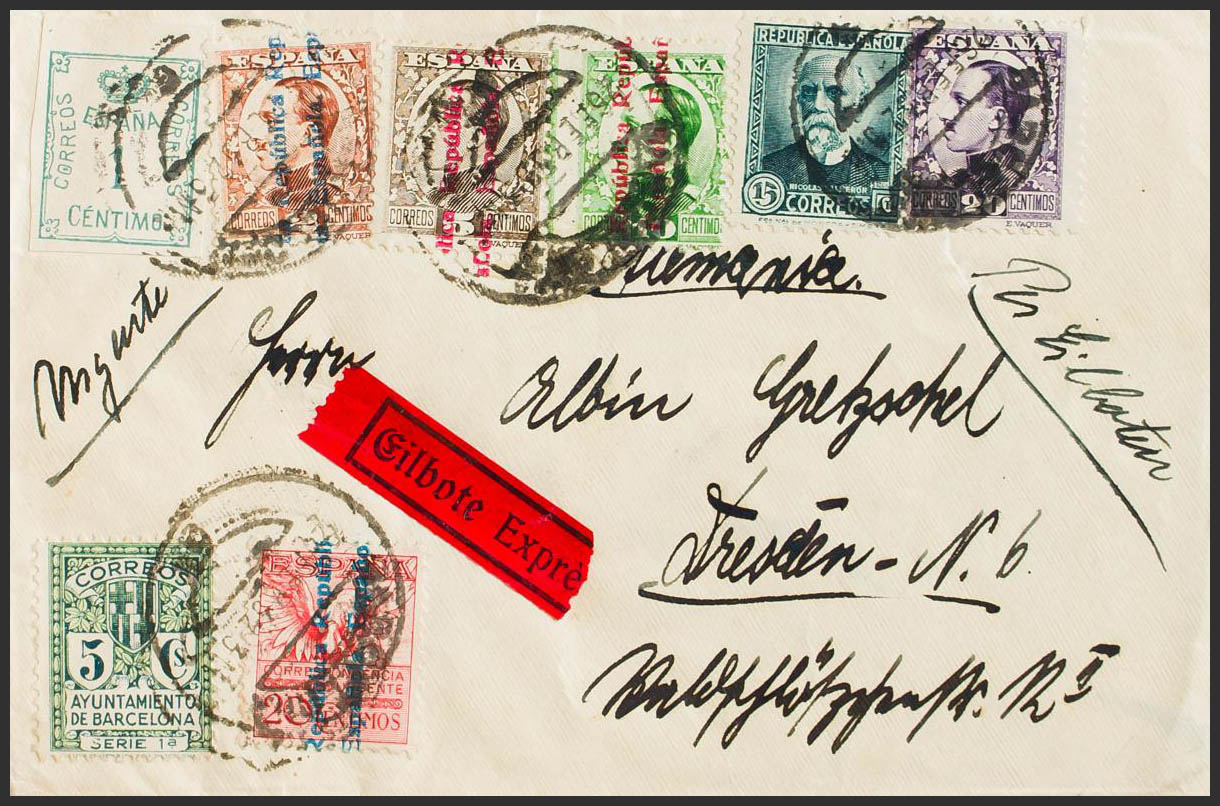 CORREOS
ESPAÑA
CORREOS
1
CÉNTIMO
ESPAÑA
CORREOS 2 CÉNTIMOS
República Española
ESPAÑA
CORREOS 5 CENTIMOS
VAQUER
República Española
ESPAÑA
CENTIMO
VAQUER
República Española
REPUBLICA ESPAÑOLA
NICOLAS SALMERON
15 CORREOS
ESPAÑA
CORREOS 20 CENTIMOS
E. VAQUER
Per Eilboten
Urgente
Herrn
Albin Gretzschel
Eilbote Exprè
Dresden - N. 6.
Waldschlößchenstr. II
CORREOS
5 Cs
AYUNTAMIENTO
DE BARCELONA
SERIE 1ª
ESPAÑA
CORRESPONDENCIA
URGENTE
20 CENTIMOS
República Española